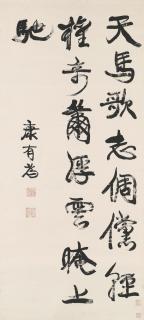 天馬歌志倜儻
權奇薾浮雲晻上
馳
康有為